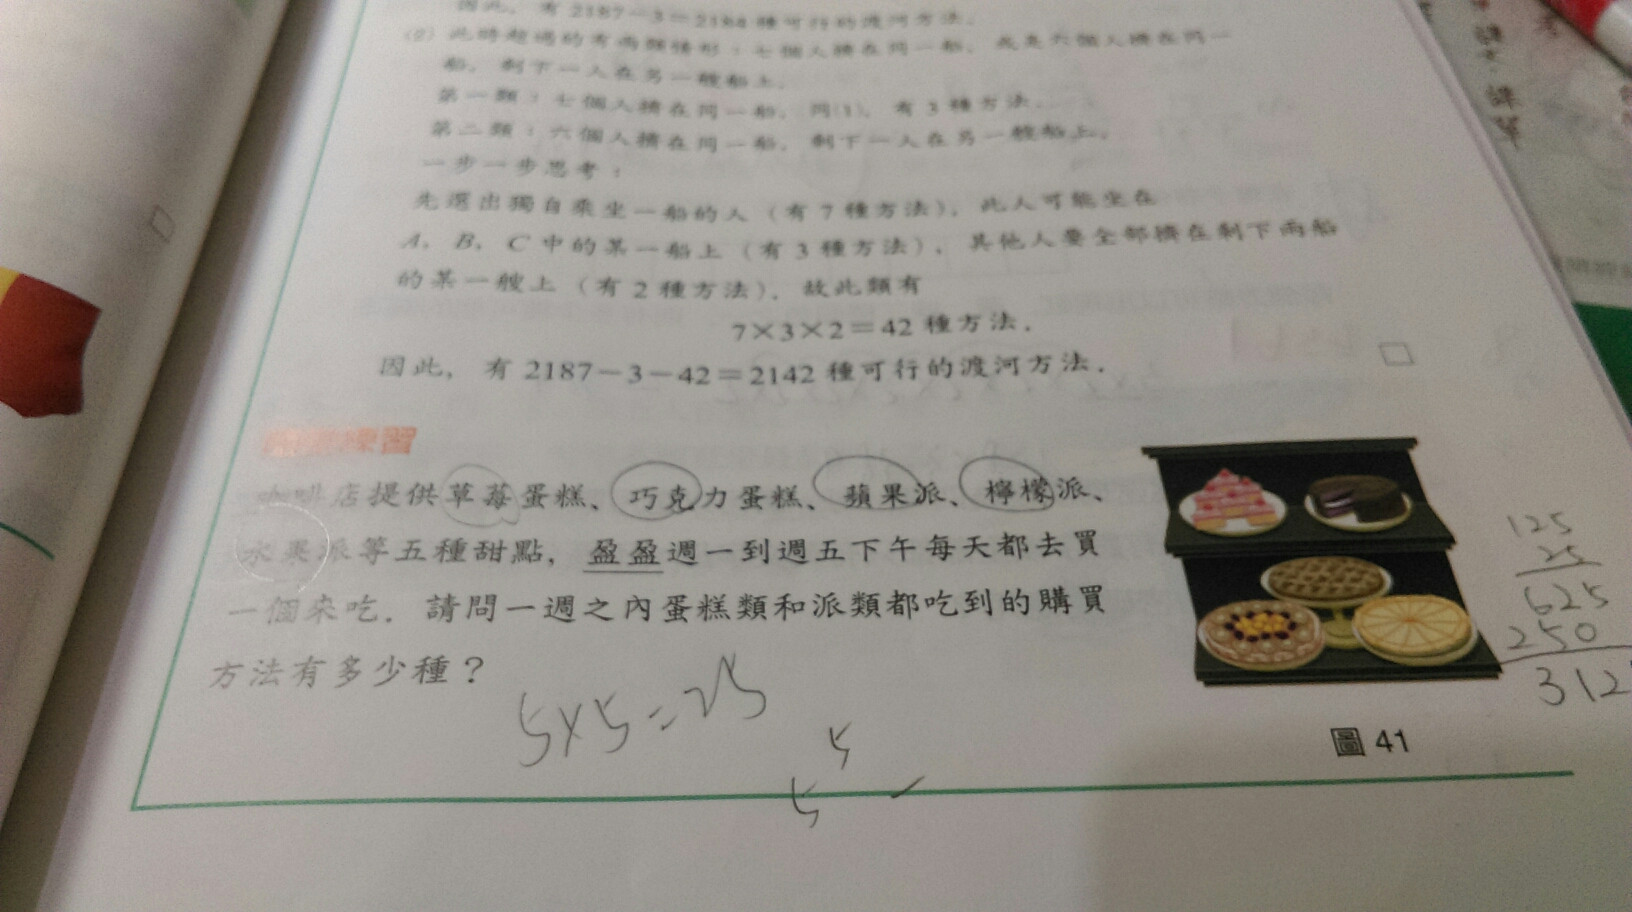 因此，有 2187－3＝2184 種可行的渡河方法．
(2) 此時超過的有兩類情形：七個人擠在同一船，或是六個人擠在同一
船，剩下一人在另一艘船上．
第一類：七個人擠在同一船，同(1)，有 3 種方法．
第二類：六個人擠在同一船，剩下一人在另一艘船上．
一步一步思考：
先選出獨自乘坐一船的人（有 7 種方法），此人可能坐在
A，B，C 中的某一船上（有 3 種方法），其他人要全部擠在剩下兩船
的某一艘上（有 2 種方法），故此類有
7×3×2＝42 種方法．
因此，有 2187－3－42＝2142 種可行的渡河方法．
練習
咖啡店提供草莓蛋糕、巧克力蛋糕、蘋果派、檸檬派、
水果派等五種甜點，盈盈週一到週五下午每天都去買
一個來吃．請問一週之內蛋糕類和派類都吃到的購買
方法有多少種？
5×5=25
5
5
圖 41
125
25
625
250
312
課文
課